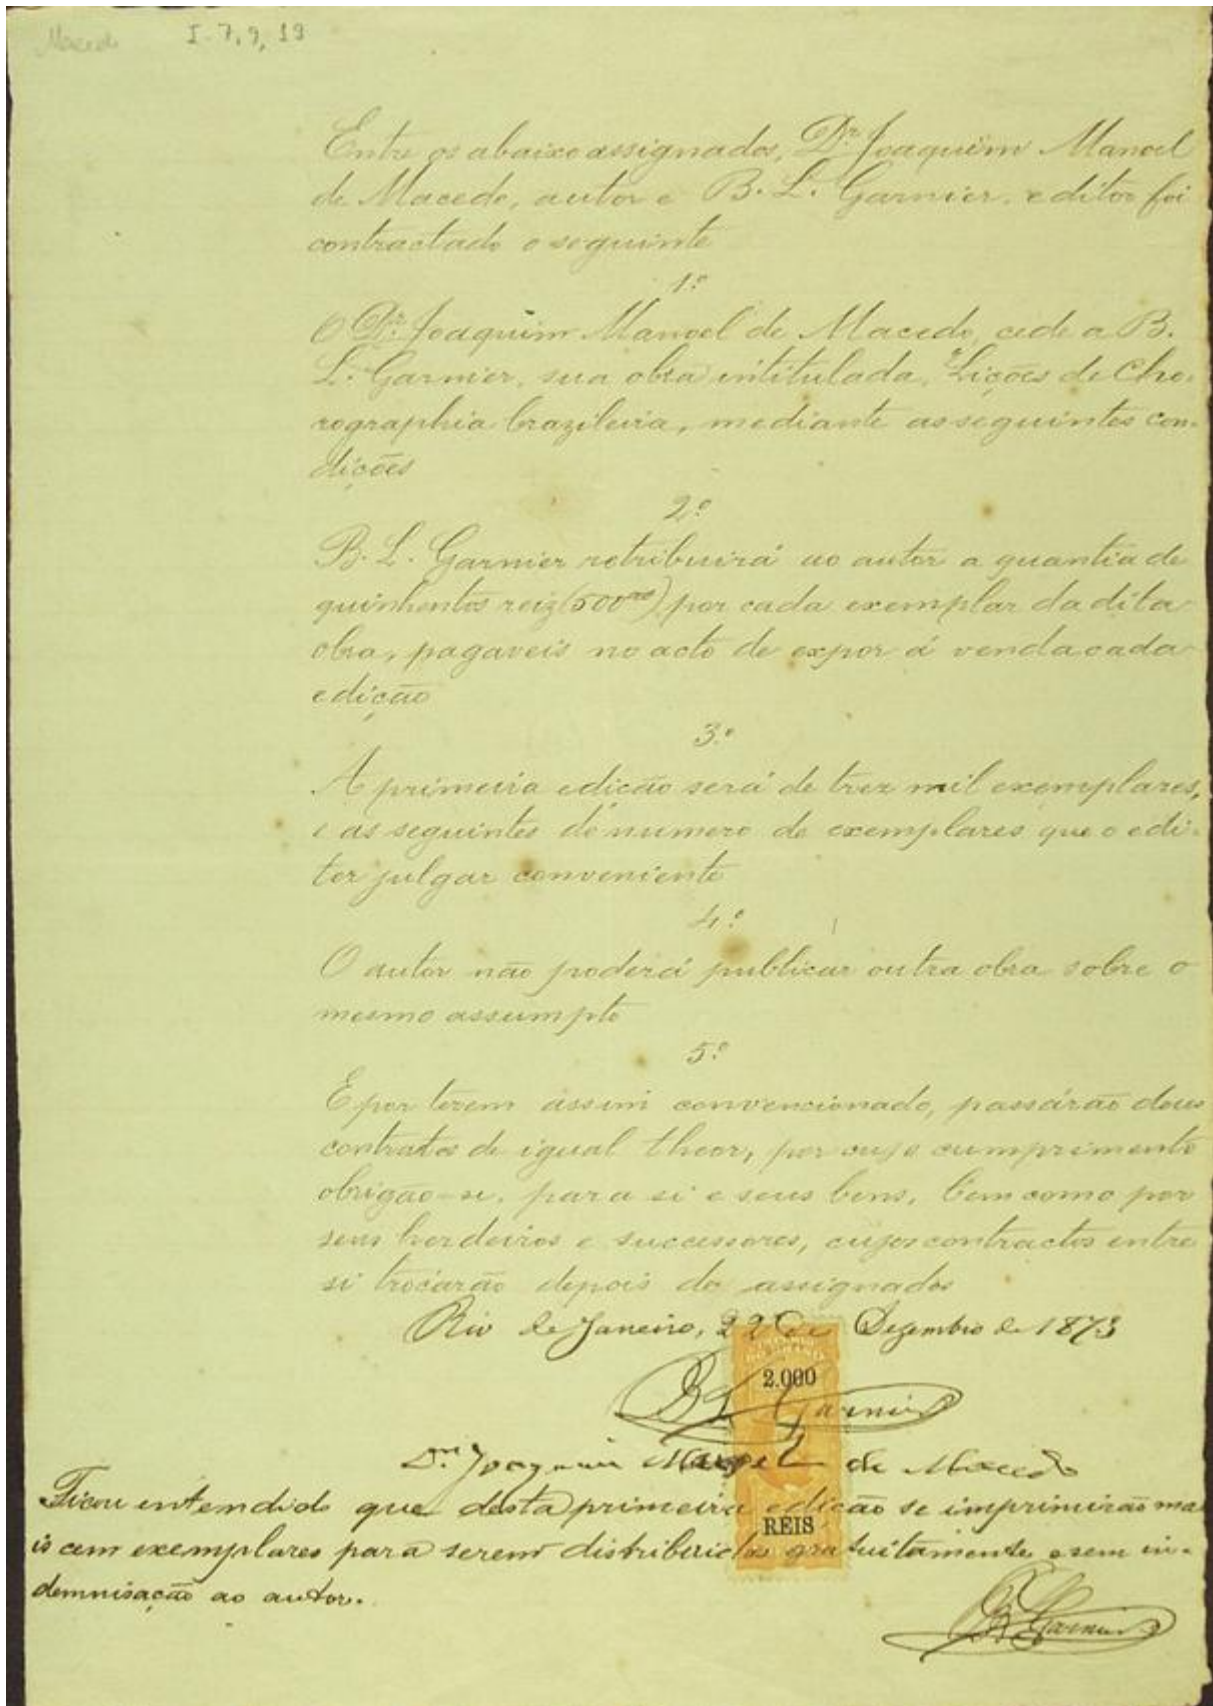 Macedo I-7,9,19
Entre os abaixo assignados, Dr. Joaquim Manoel
de Macedo, autor e B. L. Garnier, editor foi
contractado o seguinte
1º
O Dr. Joaquim Manoel de Macedo, cede a B.
L. Garnier, sua obra intitulada, "Lições de Cho-
rographia brazileira, mediante as seguintes con-
dições
2º
B. L. Garnier retribuirá ao autor a quantia de
quinhentos reiz (500) por cada exemplar da dita
obra, pagaveis no acto de expor á venda cada
edição
3º
A primeira edicão será de trez mil exemplares,
e as seguintes do numero de exemplares que o edi-
tor julgar conveniente
4º
O autor não poderá publicar outra obra sobre o
mesmo assumpto
5º
E por terem assim convencionado, passárão dous
contratos de igual theor, por cujo cumprimento
obrigão-se, para si e seus bens, bem como por
seus herdeiros e successores, cujos contractos entre
si trocárão depois de assignados
Rio de Janeiro, 22 de Dezembro de 1873
2.000
B L Garnier
Dr. Joaquim Manoel de Macedo
Ficou entendido que desta primeira edicão se imprimirão ma
REIS
is cem exemplares para serem distribuidos gratuitamente e sem in-
demnisação ao autor.
B L Garnier